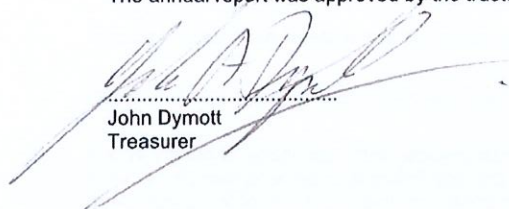 The annual report was approved by the
John Dymott
Treasurer